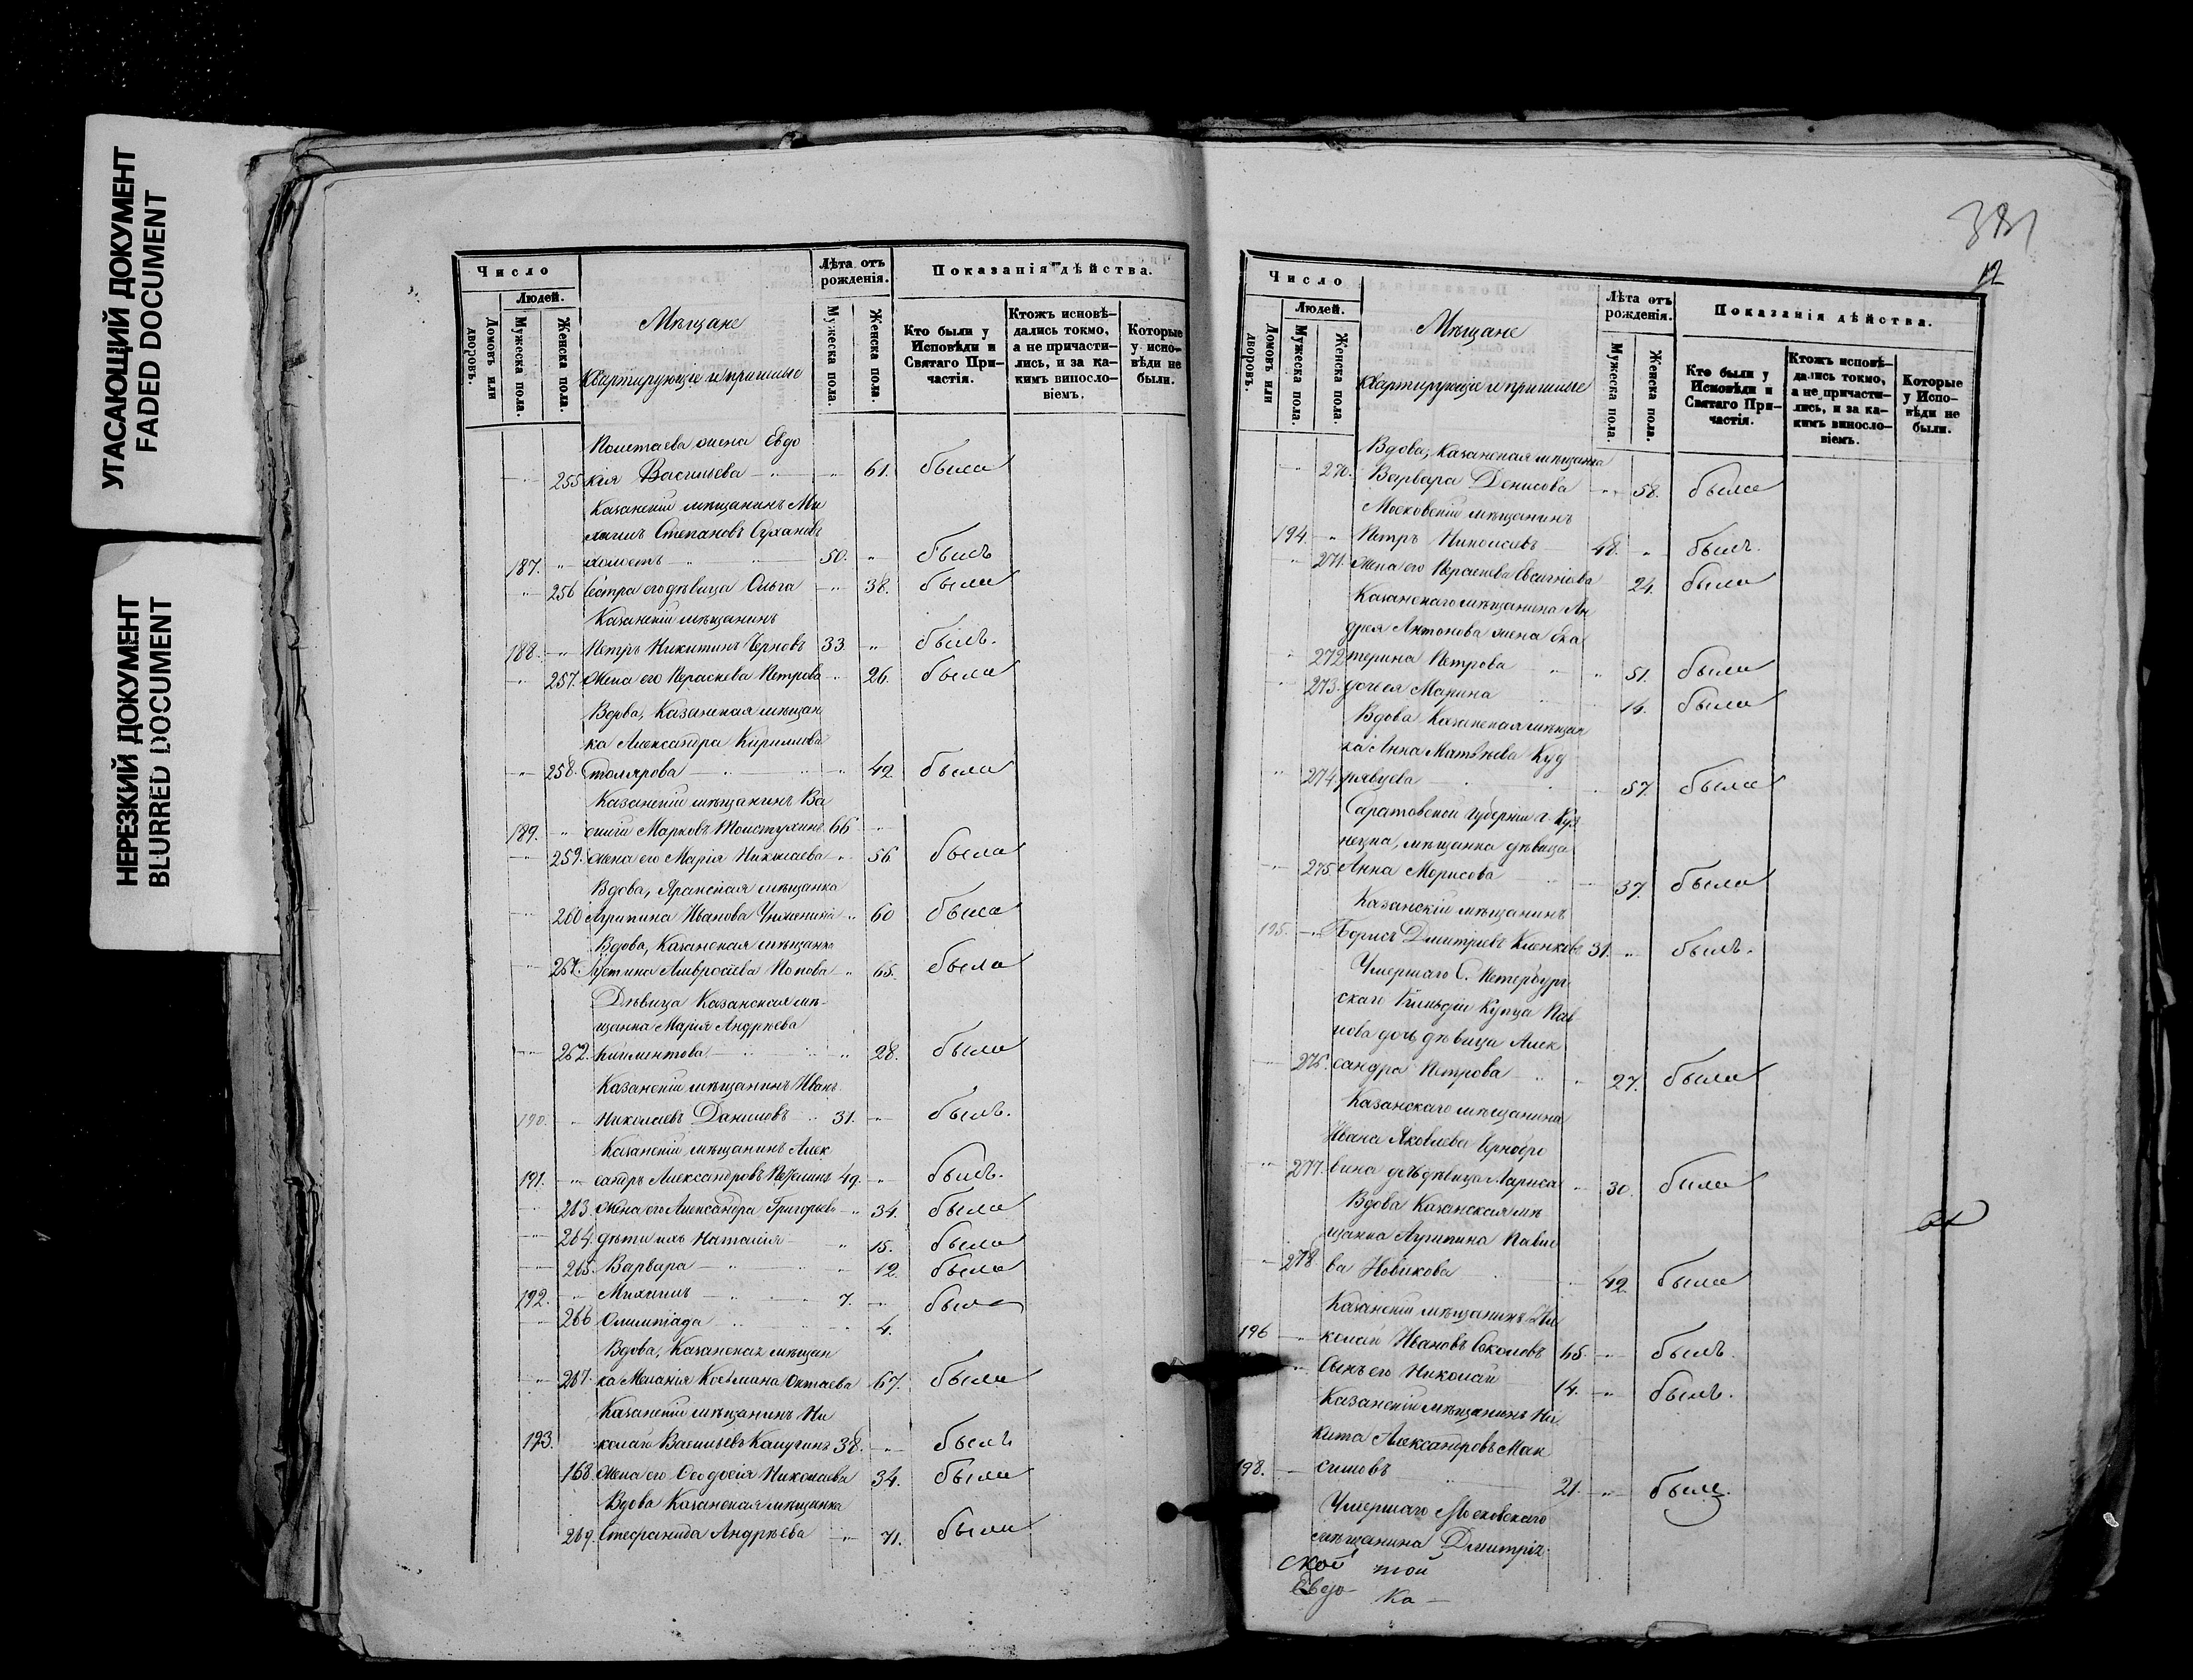 УГАСАЮЩИЙ ДОКУМЕНТ
FADED DOCUMENT
НЕРЕЗКИЙ ДОКУМЕНТ
BLURRED DOCUMENT
Число
Людей.
Домовъ или дворовъ.
Мужеска пола.
Женска пола.
Мѣщане
Квартирующіе и пришлые
Лѣта отъ рожденія.
Мужеска пола.
Женска пола.
Показанія дѣйства.
Кто были у Исповѣди и Святаго Причастія.
Ктожъ исповѣдались токмо, а не причастились, и за какимъ винословіемъ.
Которые у исповѣди не были.
жена Евдо
255 кія Васильева 61. была
Казанскій мѣщанинъ Ми
хаилъ Степановъ Сухановъ
187. холостъ 50. былъ
256 Сестра его дѣвица Ольга 38. была
Казанскій мѣщанинъ
188. Петръ Никитинъ Черновъ 33. былъ.
257. Жена его Параскева Петрова 26. была
Вдова, Казанская мѣщан
ка Александра Кириллова
258. Столярова 42. была
Казанскій мѣщанинъ Ва
189. силій Марковъ 66
259. Жена его Марія Николаева 56 была
Вдова, Яранская мѣщанка
260 Агрипина Иванова 60 была
Вдова, Казанская мѣщанка
261. Устина Амвросіева Попова 65. была
Дѣвица Казанская мѣ-
щанка Марія Андрѣева
262. Климентова 28. была
Казанскій мѣщанинъ Иванъ
190. Николаевъ Даниловъ 31. былъ.
Казанскій мѣщанинъ Алек
191. сандръ Александровъ 49. былъ.
263. Жена его Александра Григорьева 34. была
264. дѣти ихъ Наталія 15. была
265. Варвара 12. была
192. Михаилъ 7. была
266 Олимпіада 4.
Вдова, Казанская мѣщан
267. ка Меланія Козьмина 67. была
Казанскій мѣщанинъ Ни
193. колай Васильевъ Калугинъ 38. былъ
168. Жена его Ѳеодосія Николаева 34. была
Вдова Казанская мѣщанка
269. Стефанида Андрѣева 71. была
381
12
Число
Людей.
Домовъ или дворовъ.
Мужеска пола.
Женска пола.
Мѣщане
Квартирующіе и пришлые
Лѣта отъ рожденія.
Мужеска пола.
Женска пола.
Показанія дѣйства.
Кто были у Исповѣди и Святаго Причастія.
Ктожъ исповѣдались токмо, а не причастились, и за какимъ винословіемъ.
Которые у Исповѣди не были.
Вдова, Казанская мѣщанка
270. Варвара Денисова 58. была
Московскій мѣщанинъ
194. Петръ Николаевъ 48. былъ.
271. Жена его Параскева 24. была
Казанскаго мѣщанина Ан
дрея Антонова жена Ека
272 терина Петрова 51. была
273. дочь ея Марина 14. была
Вдова Казанская мѣщан
ка Анна Матвѣева Куд
274 рявцева 57. была
Саратовской губерніи г. Куз
нецка, мѣщанка дѣвица
275 Анна Морисова 37. была
Казанскій мѣщанинъ
195. Борисъ Дмитріевъ Кленковъ 31. былъ.
Умершаго С. Петербург
скаго Гильдіи Купца Пав
лова дочь дѣвица Алек
276. сандра Петрова 27. была
Казанскаго мѣщанина
Ивана Яковлева Чернобро
277. вина дочь дѣвица Лариса 30. была
Вдова Казанская мѣ
щанка Агрипина Павло
278. ва Новикова 42. была
Казанскій мѣщанинъ Ни
196 колай Ивановъ Соколовъ 65. былъ.
Сынъ его Николай 14. былъ.
Казанскій мѣщанинъ Ни
кита Александровъ Мак
198. симовъ 21. былъ.
Умершаго Московскаго
мѣщанина Дмитрія
ской той
Евдо- Ка-